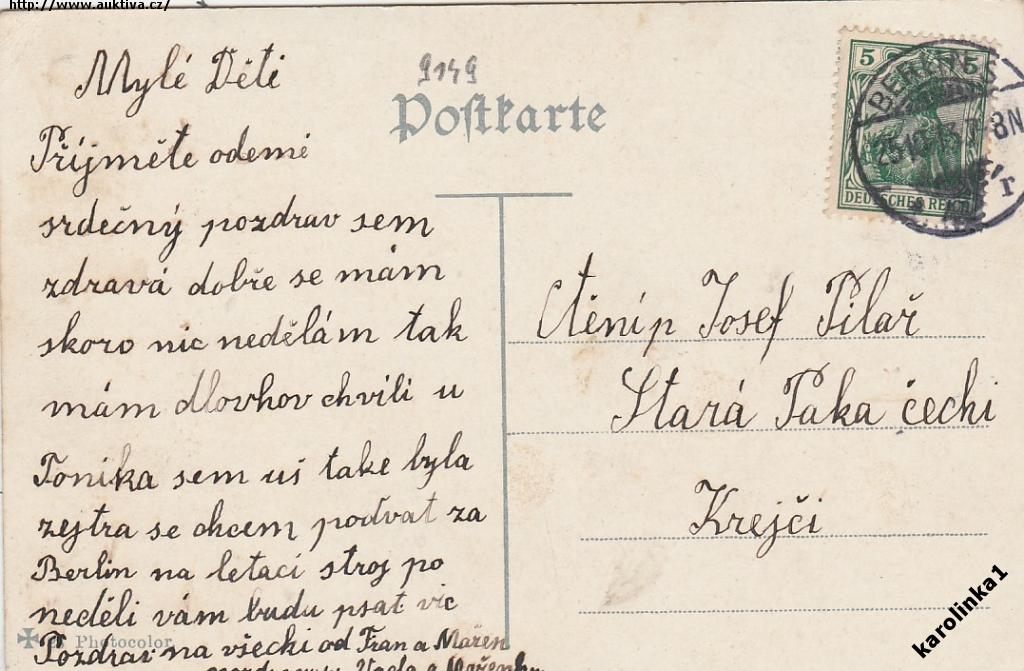 http://www.auktiva.cz/
Mylé Děti
Příjměte odemě
srdečný pozdrav sem
zdravá dobře se mám
skoro nic nedělám tak
mám dlovhov chvíli u
Tonika sem uš take byla
zejtra se chcem podvat za
Berlin na letací stroj po
neděli vám budu psat víc
Pozdrav na všecki od Fran a Mařen
a Mařenku
9149
Postkarte
5 5
DEUTSCHES REICH
BERLIN
8N
Ctěníp Josef Pilař
Stará Paka čechi
Krejčí
Photocolor
karolinka1